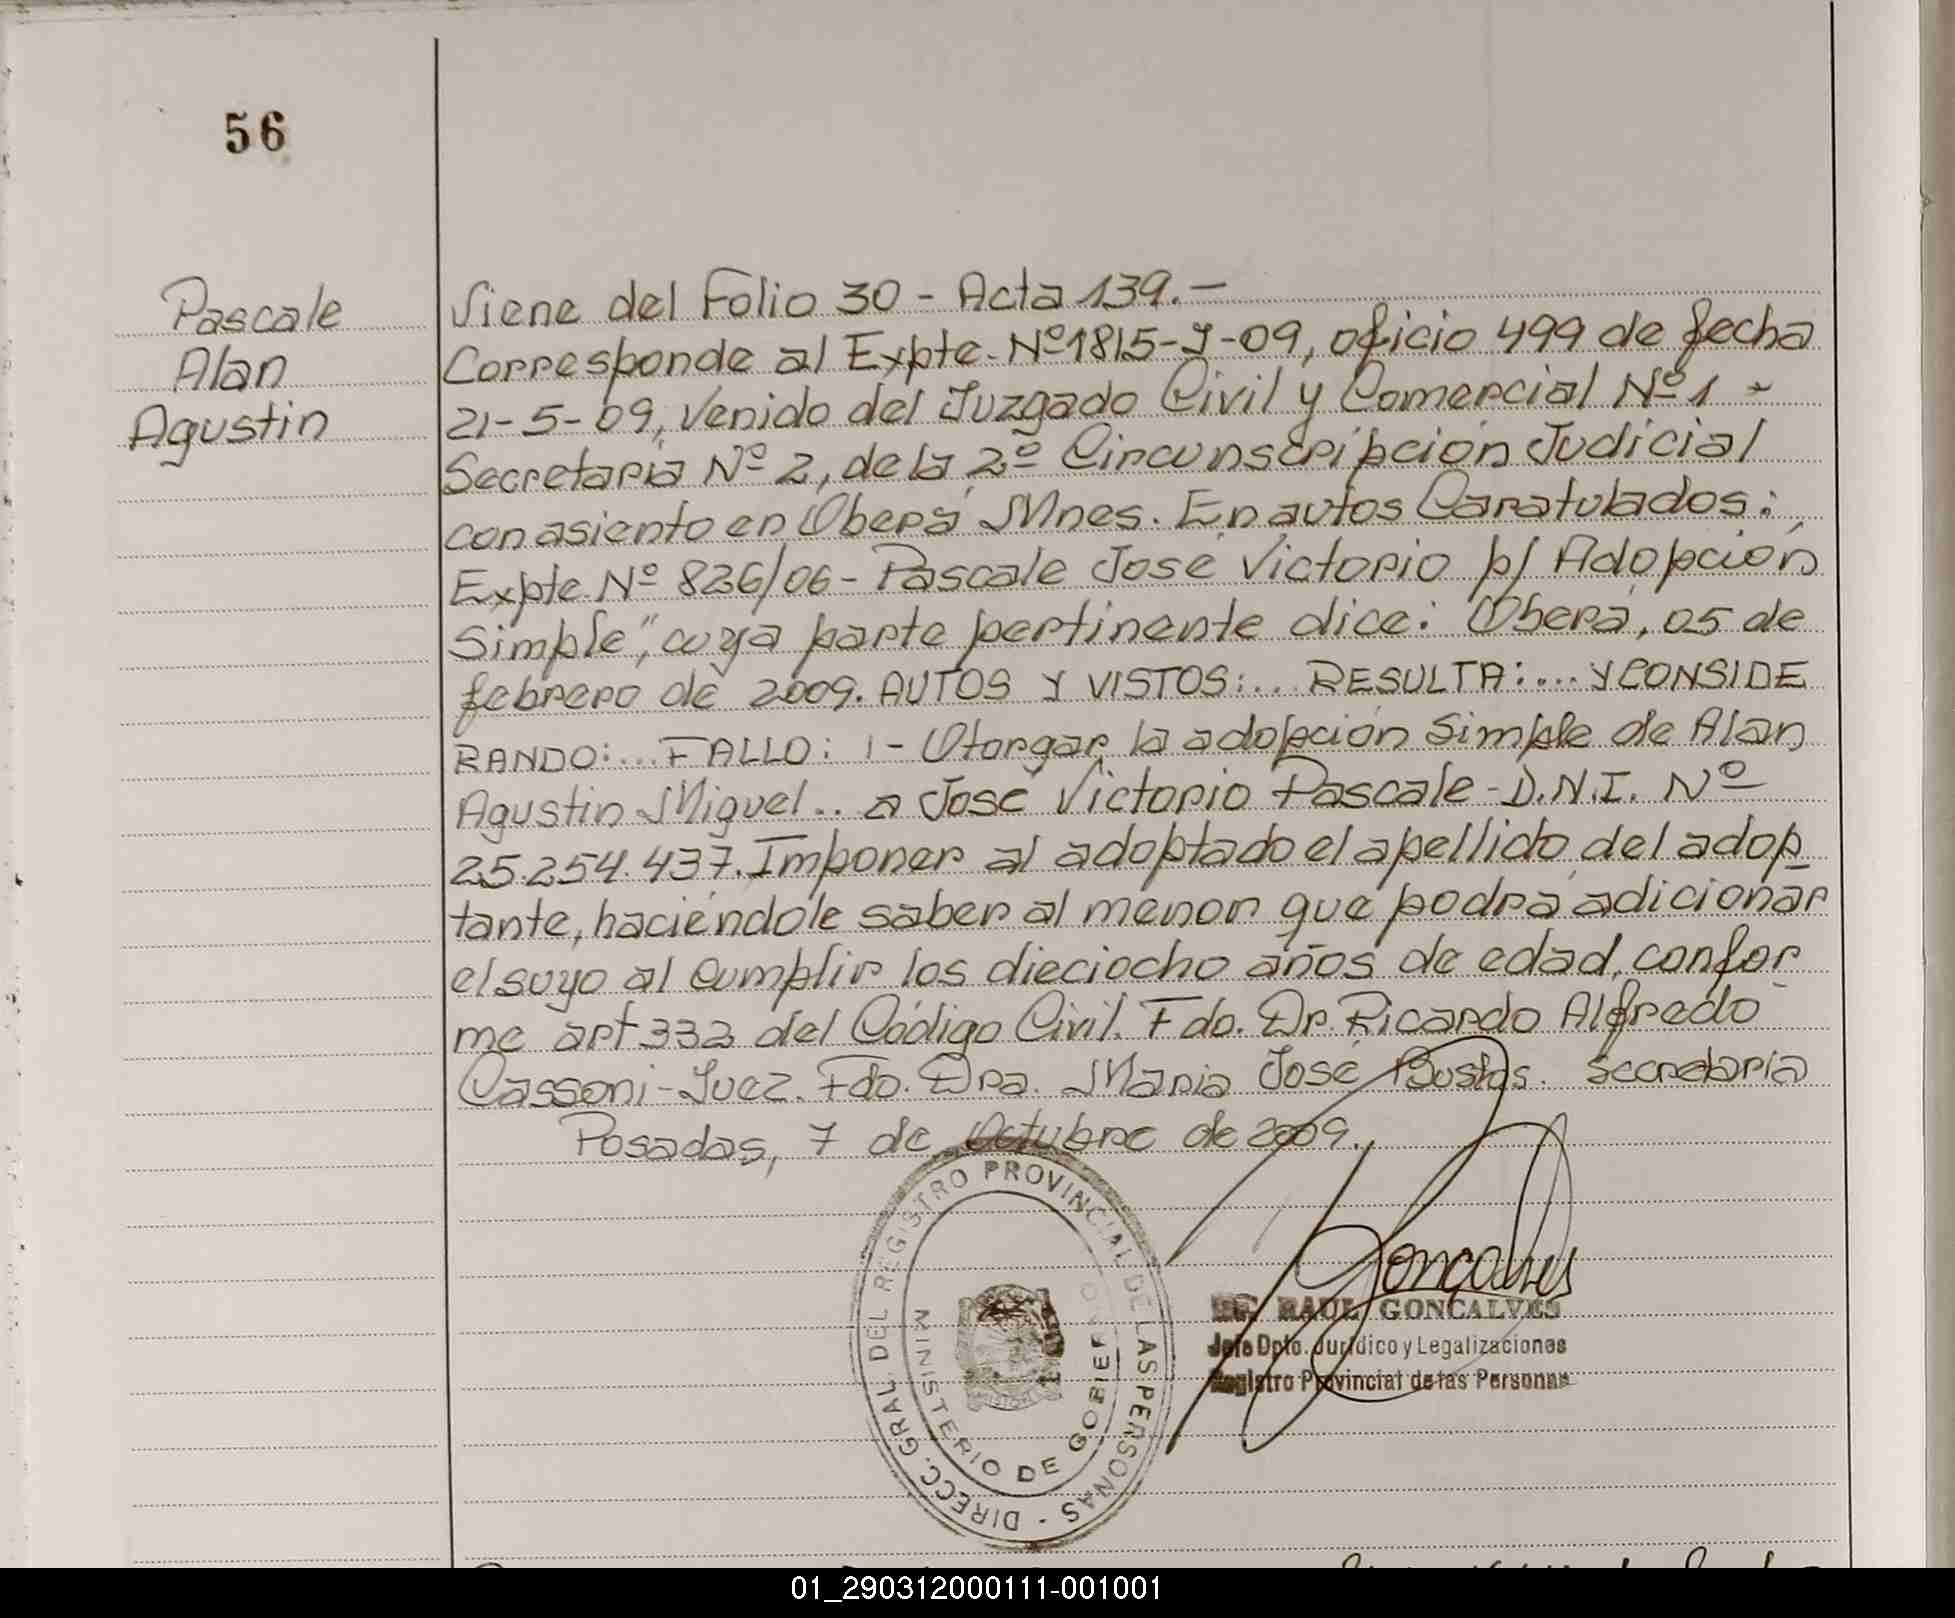 56
Pascale
Alan
Agustin
Viene del Folio 30 - Acta 139.-
Corresponde al Expte. Nº 1815-J-09, oficio 499 de fecha
21-5-09, Venido del Juzgado Civil y Comercial Nº 1 -
Secretaría Nº 2, de la 2º Circunscripción Judicial
con asiento en Oberá Mnes. En autos Caratulados:
Expte. Nº 826/06 - Pascale José Victorio p/ Adopción
Simple", cuya parte pertinente dice: Oberá, 05 de
febrero de 2009. AUTOS Y VISTOS:... RESULTA:... Y CONSIDE
RANDO:... FALLO: 1- Otorgar la adopción Simple de Alan
Agustin Miguel.. a José Victorio Pascale - D.N.I. Nº
25.254.437. Imponer al adoptado el apellido del adop
tante, haciéndole saber al menor que podrá adicionar
el suyo al cumplir los dieciocho años de edad, confor
me art 332 del Código Civil. Fdo. Dr. Ricardo Alfredo
Cassoni - Juez. Fdo. Dra. Maria José Bustos. Secretaria
Posadas, 7 de Octubre de 2009.
DIRECC. GRAL DEL REGISTRO PROVINCIAL DE LAS PERSONAS -
MINISTERIO DE GOBIERNO
Goncalves
RAUL GONCALVES
Jefe Dpto. Jurídico y Legalizaciones
Registro Provincial de las Personas
01_290312000111-001001